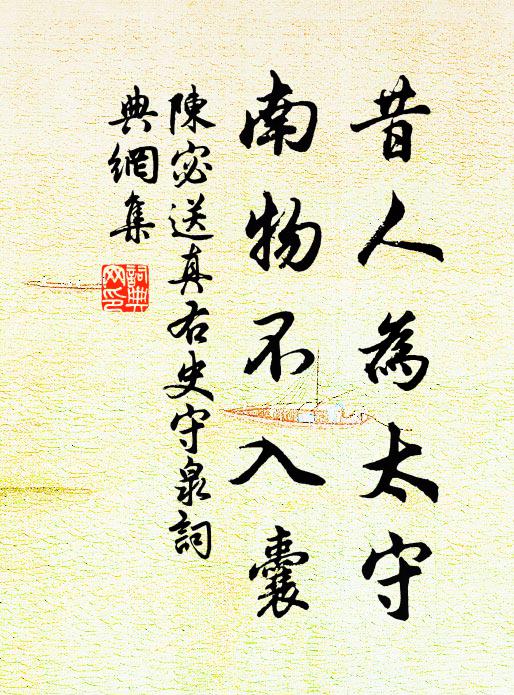 昔人為太守
南物不入囊
陳宓送真右史守泉詞
典網集
詞典
網印